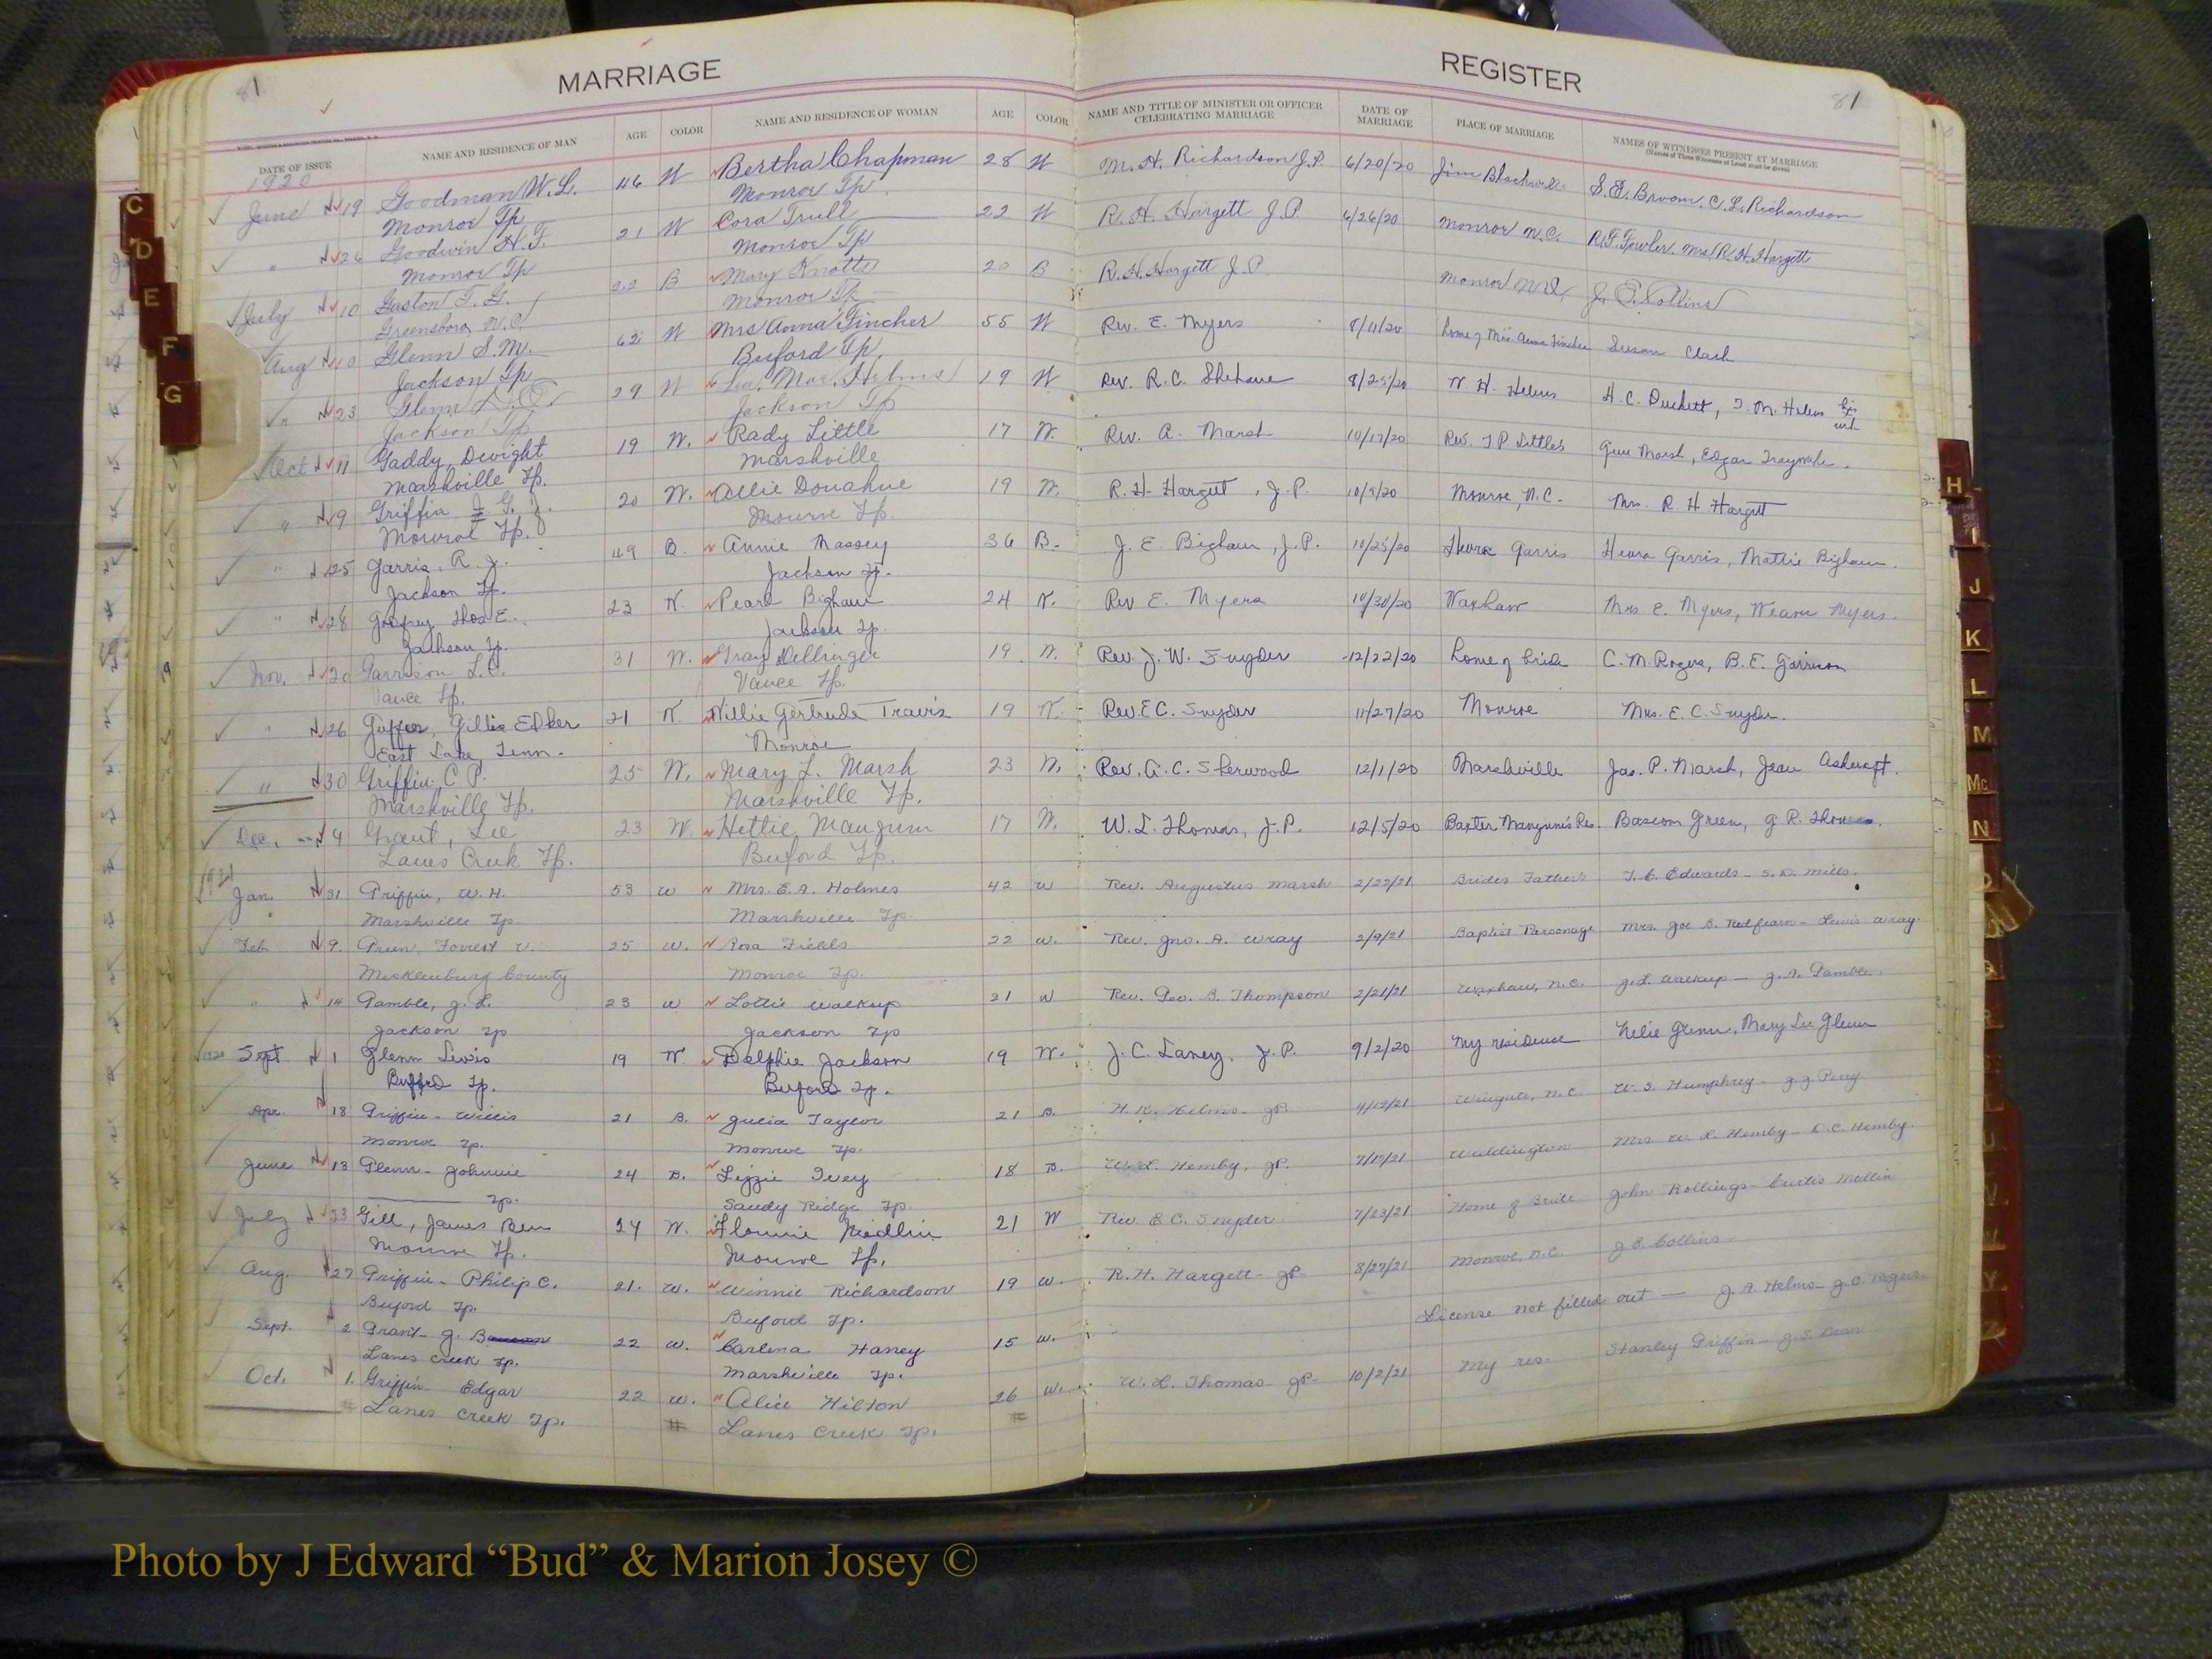 81
MARRIAGE
REGISTER
81
DATE OF ISSUE NAME AND RESIDENCE OF MAN AGE COLOR NAME AND RESIDENCE OF WOMAN AGE COLOR NAME AND TITLE OF MINISTER OR OFFICER CELEBRATING MARRIAGE DATE OF MARRIAGE PLACE OF MARRIAGE NAMES OF WITNESSES PRESENT AT MARRIAGE
1920
June 19 Goodman W. L. 46 W Bertha Chapman 28 W M. H. Richardson J.P. 6/20/20 Jim S. E. Broom, C. L. Richardson
Monroe Tp Monroe Tp
" 26 Goodwin H. F. 21 W Cora Trull 22 W R. H. Hargett J.P. 6/26/20 Monroe N.C. R. F. Fowler, Mrs R. H. Hargett
Monroe Tp Monroe Tp
July 10 Gaston T. G. 22 B Mary Knotts 20 B R. H. Hargett J.P. Monroe N.C. J. E. Collins
Greensboro N.C. Monroe Tp
Aug 10 Glenn S. M. 62 W Mrs Anna Fincher 55 W Rev. E. Myers 8/11/20 home of Mrs. Anna Fincher Susan Clark
Jackson Tp Buford Tp.
" 23 Glenn 29 W Mae Helms 19 W Rev. R. C. 8/25/20 W. H. Helms H. C. Duckett, T. M. Helms
Jackson Tp Jackson Tp
Oct 11 Gaddy Dwight 19 W. Rady Little 17 W. Rev. A. Marsh 10/17/20 Res. J P Little's Marsh, Edgar
Marshville Tp. Marshville
" 9 Griffin J. 20 W. Allie Donahue 19 W. R. H. Hargett, J.P. 10/9/20 Monroe, N.C. Mrs. R. H. Hargett
Monroe Tp. Monroe Tp.
" 25 Garris, R. J. 49 B. Annie Massey 36 B. J. E. Bigham, J.P. 10/25/20 Garris Garris, Mattie Bigham.
Jackson Tp. Jackson Tp.
" 28 Godfrey Thos E. 23 W. Pearl Bigham 24 W. Rev E. Myers 10/30/20 Waxhaw Mrs. E. Myers, Myers.
Jackson Tp. Jackson Tp.
Nov. 20 Garrison L. C. 31 W. Dellinger 19 W. Rev. J. W. Snyder 12/22/20 home of bride C. M. Rogers, B. E. Garrison
Vance Tp. Vance Tp.
" 26 Gillis 21 W. Willie Gertrude Travis 19 W. Rev. E C. Snyder 11/27/20 Monroe Mrs. E. C. Snyder.
East Lake, Tenn. Monroe
" 30 Griffin C P. 25 W. Mary L. Marsh 23 W. Rev. A. C. Sherwood 12/1/20 Marshville Jas. P. Marsh, Jean Ashcraft.
Marshville Tp. Marshville Tp.
Dec. 4 Grant, Lee 23 W. Hettie Mangum 17 W. W. L. Thomas, J.P. 12/5/20 Baxter Mangum's Res. Bascom Green, G. R. Thomas.
Lanes Creek Tp. Buford Tp.
1921
Jan 31 Griffin, W. H. 53 W Mrs. E. A. Holmes 42 W Rev. Augustus Marsh 2/22/21 Brides Father's T. C. Edwards - S. D. Mills.
Marshville Tp. Marshville Tp.
Feb. 9. Green, Forrest V. 25 W. Rosa Fields 22 W. Rev. Jno. A. Wray 2/9/21 Baptist Parsonage Mrs. Joe B. Redfearn - Lewis Wray.
Mecklenburg County Monroe Tp.
" 14 Gamble, J. L. 23 W Lottie Walkup 21 W Rev. Geo. B. Thompson 2/21/21 Waxhaw, N.C. J. L. Walkup - J. A. Gamble.
Jackson Tp Jackson Tp
1920 Sept 1 Glenn Lewis 19 W Delphie Jackson 19 W. J. C. Laney, J.P. 9/2/20 My residence Nelie Glenn, Mary Lee Glenn
Buford Tp. Buford Tp.
Apr. 18 Griffin - Willis 21 B. Taylor 21 B. H. K. Helms - JP. 4/19/21 Wingate, N.C. W. S. Humphrey - J. J. Perry.
Monroe Tp. Monroe Tp.
June 13 Glenn - Johnnie 24 B. Lizzie Ivey 18 B. W. L. Hemby, JP. 7/17/21 Weddington Mrs. W. L. Hemby - D. C. Hemby.
Tp. Sandy Ridge Tp.
July 23 Gill, James Ben 24 W. Medlin 21 W Rev. E. C. Snyder 7/23/21 Home of Bride John Rollings - Curtis Medlin
Monroe Tp. Monroe Tp.
Aug. 27 Griffin - Philip C. 21. W. Winnie Richardson 19 W. R. H. Hargett - JP 8/27/21 Monroe, N.C. J. E. Collins
Buford Tp. Buford Tp.
Sept. 2 Grant - J. 22 W. Carlena Haney 15 W. License not filled out - J. A. Helms - J. C. Rogers.
Lanes Creek Tp. Marshville Tp.
Oct. 1. Griffin - Edgar 22 W. Alice Hilton 26 W. W. L. Thomas - JP - 10/2/21 My res. Stanley Griffin - J. S. Dean
# Lanes Creek Tp. # Lanes Creek Tp. #
C
D
E
F
G
H
I
J
K
L
M
Mc
N
Photo by J Edward “Bud” & Marion Josey ©